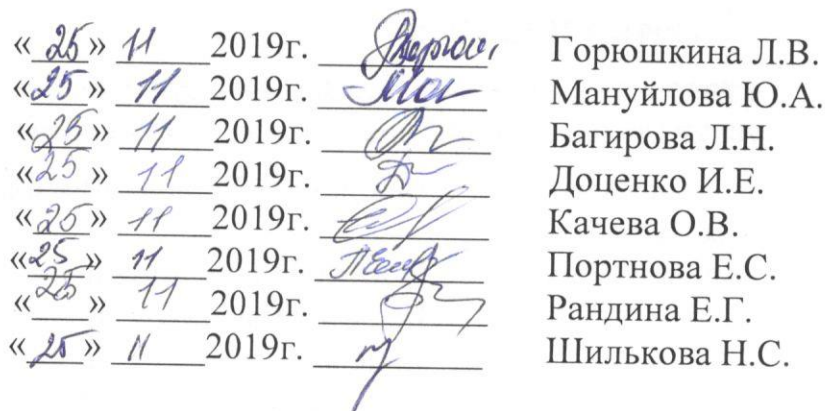 «25» 11 2019г. Горюшкина Л.В.
«25» 11 2019г. Мануйлова Ю.А.
«25» 11 2019г. Багирова Л.Н.
«25» 11 2019г. Доценко И.Е.
«25» 11 2019г. Качева О.В.
«25» 11 2019г. Портнова Е.С.
«25» 11 2019г. Рандина Е.Г.
«25» 11 2019г. Шилькова Н.С.